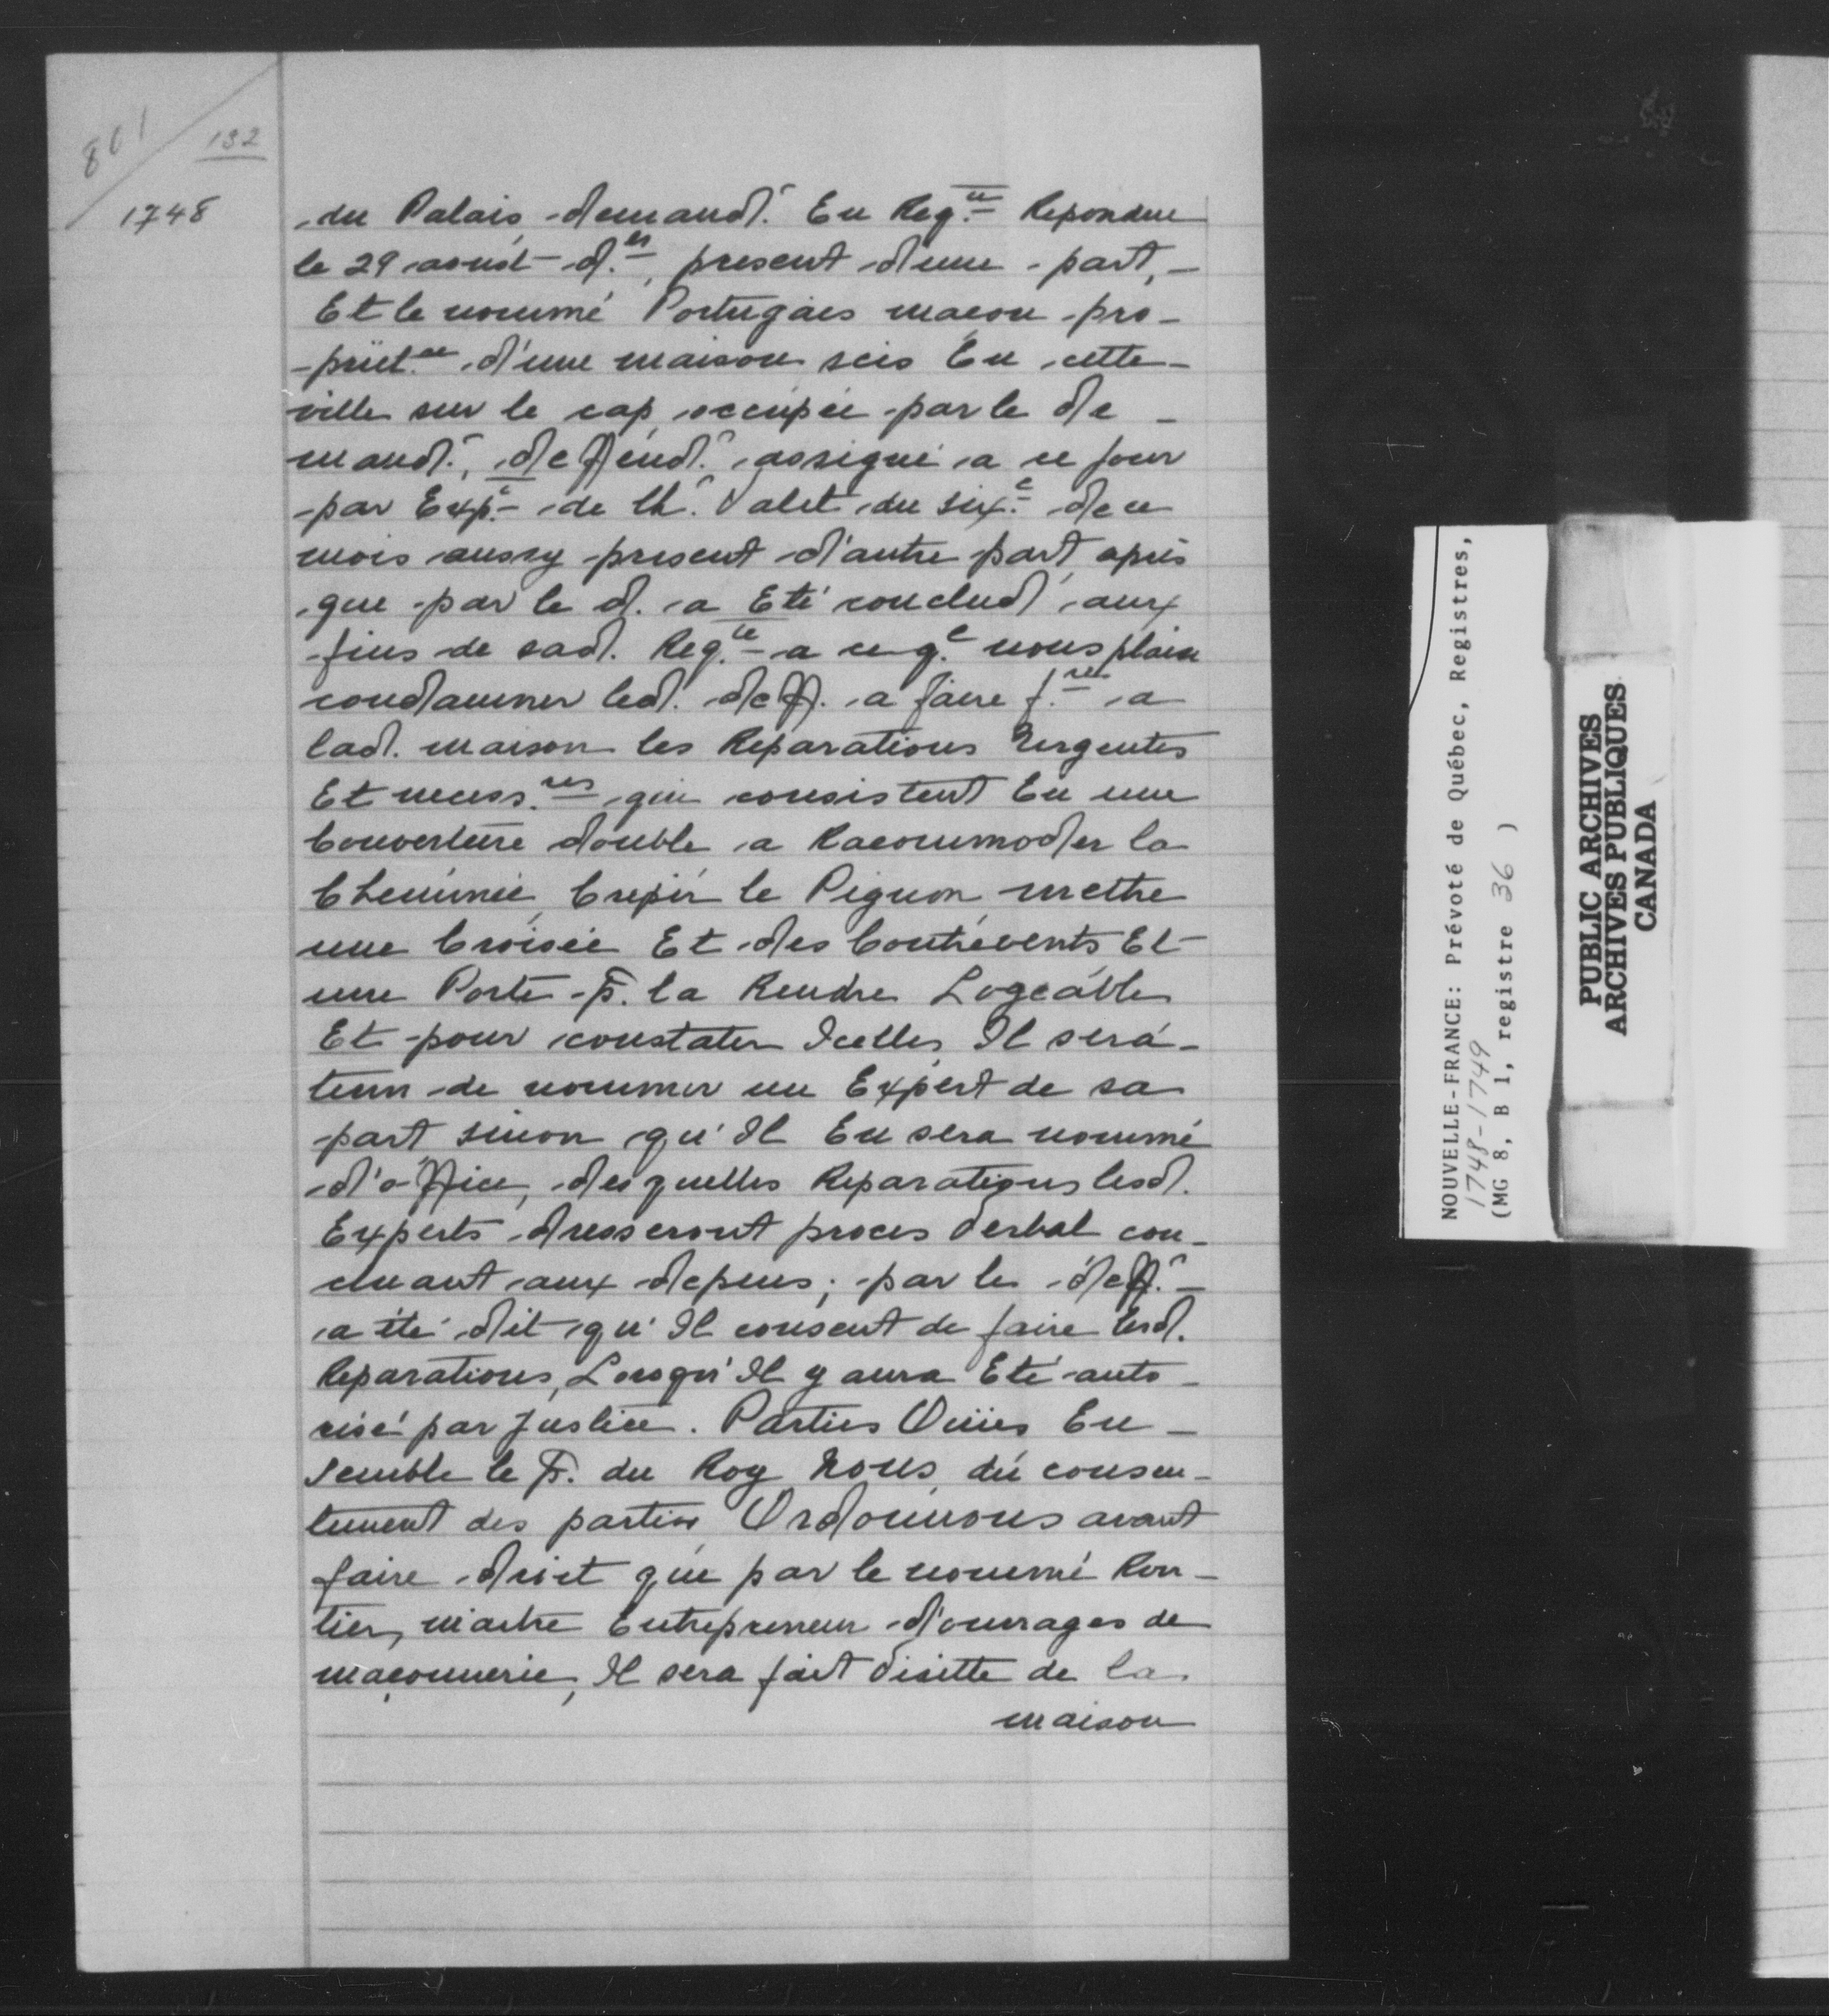 801
132
1748
du Palais, demand.r En Req.te Repondue
le 29 aoust d.er, present d'une part,
Et le nommé Portugais maçon pro-
priet.re d'une maison scis En cette
ville sur le cap occupée par le de-
mand.r, deffend.r assigné a ce jour
par Exp.t de Ch.r Valet du six.e de ce
mois aussy present d'autre part, après
que par le d. a Eté conclud aux
fins de sad. Req.te a ce q.e nous plaise
condamner led. deff. a faire f.re a
lad. maison les Reparations Urgentes
Et necess.res qui consistent En une
Couverture double, a Racommoder la
Cheminée, Crepir le Pignon, mettre
une Croisée Et des Contrevents Et
une Porte p.r la Rendre Logeable
Et pour constater Icelles, Il sera
tenu de nommer un Expert de sa
part sinon qu'Il En sera nommé
d'office, desquelles Reparations lesd.
Experts dresseront proces Verbal con-
cluant aux depens; par le deff.r
a été dit qu'Il consent de faire lesd.
Reparations, Lorsqu'Il y aura Eté auto-
risé par Justice. Parties Ouïes En-
semble le P.r du Roy Nous, du consen-
tement des parties Ordonnons avant
faire droit que par le nommé Ren-
tier, maitre Entrepreneur d'ouvrages de
maçonnerie, Il sera fait Visitte de la
maison
NOUVELLE-FRANCE: Prévoté de Québec, Registres,
1748-1749
(MG 8, B 1, registre 36 )
PUBLIC ARCHIVES
ARCHIVES PUBLIQUES
CANADA